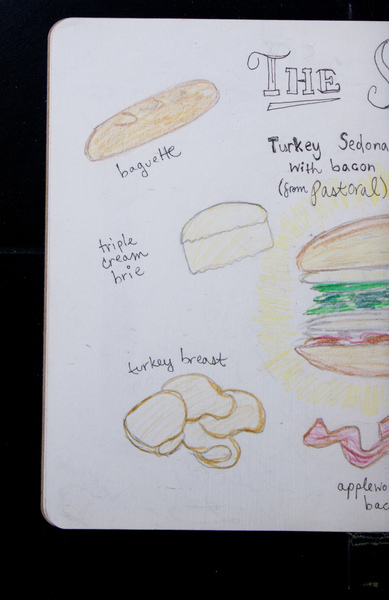 THE S
baguette
Turkey Sedona
with bacon
(from Pastoral)
triple
cream
brie
turkey breast
applewo
bac